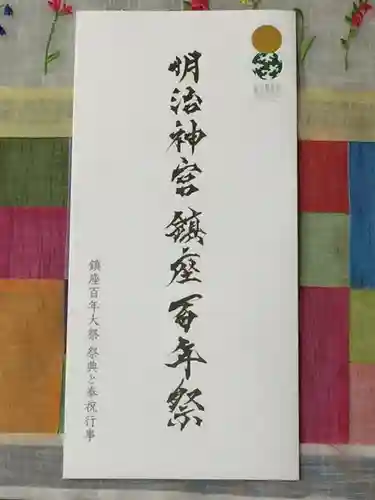 明治神宮鎮座百年祭
鎮座百年大祭 祭典と奉祝行事